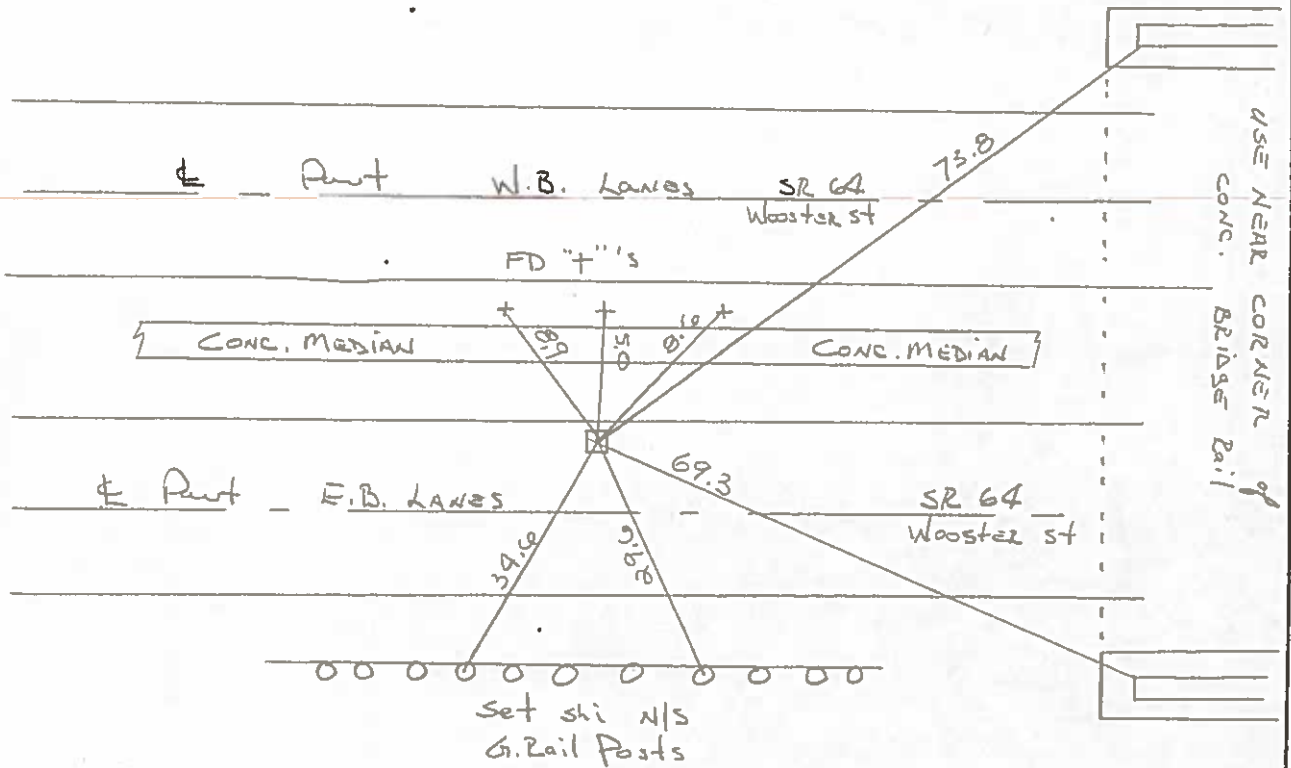 73.8
℄ - Pvmt W.B. Lanes SR 64
Wooster st
FD "+"'s
8.9
5.0
CONC. MEDIAN
CONC. MEDIAN
69.3
℄ Pvmt - E.B. LANES - SR 64
Wooster st
34.6
Set shi N/S
G.Rail Posts
USE NEAR CORNER of
CONC. BRIDGE Rail